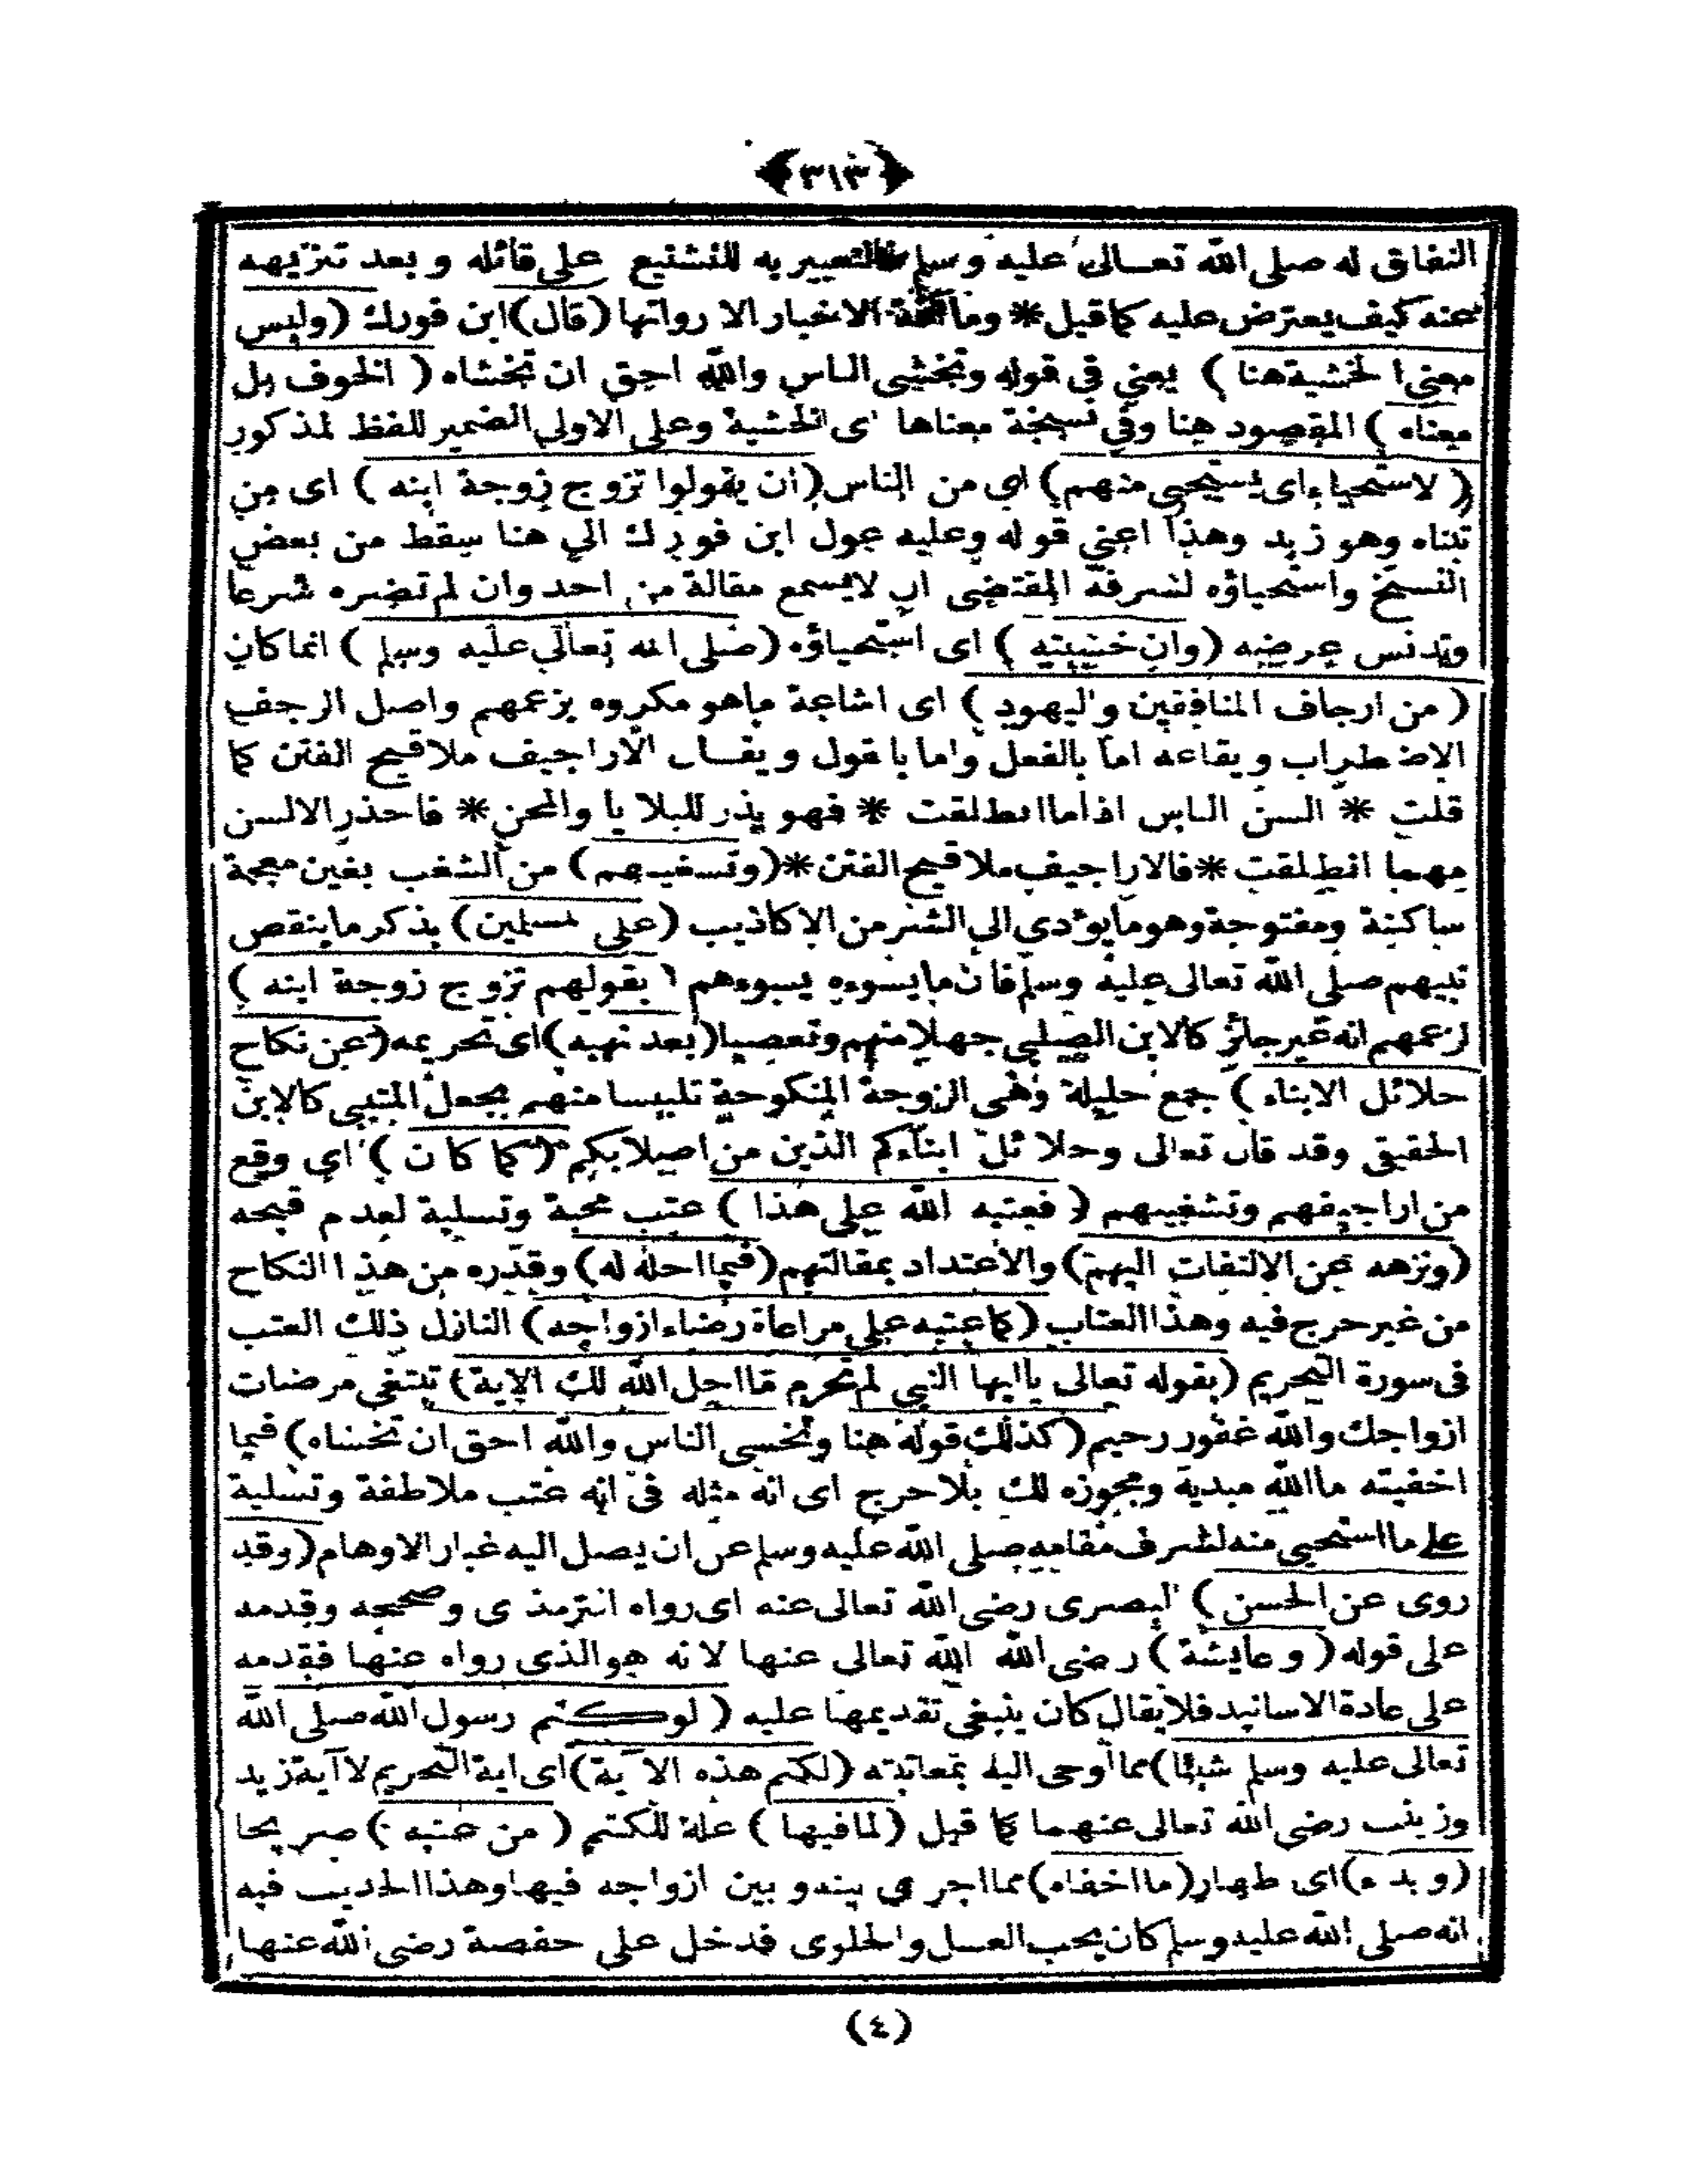 ﴿٣١٣﴾
النفاق له صلى الله تعالى عليه وسلم فالتعبير به للتشنيع على قائله و بعد تنزيهه
عنه كيف يعترض عليه كما قيل * وما آفة الاخبار الا رواتها (قال) ابن فورك (وليس
معنى الخشية هنا) يعني في قوله وتخشى الناس والله احق ان تخشاه (الخوف بل
معناه) المقصود هنا وفي نسخة معناها اى الخشية وعلى الاولى الضمير للفظ لمذكور
(لاستحياء اى يستحيى منهم) اى من الناس (ان يقولوا تزوج زوجة ابنه) اى من
تبناه وهو زيد وهذا اعنى قوله وعليه عول ابن فورك الى هنا سقط من بعض
النسخ واستحياؤه لشرفه المقتضى ان لايسمع مقالة من احد وان لم تضره شرعا
وتدنس عرضه (وان خشيته) اى استحياؤه (صلى الله تعالى عليه وسلم) انما كان
(من ارجاف المنافقين واليهود) اى اشاعة ماهو مكروه بزعمهم واصل الرجف
الاضطراب و يقاعه اما بالفعل واما باقول و يقال الاراجيف ملاقيح الفتن كما
قلت * السن الناس اذاما انطلقت * فهو يذر للبلايا والمحن * فاحذر الالسن
مهما انطلقت * فالاراجيف ملاقيح الفتن * (وتسغيبهم) من الشغب بغين معجمة
ساكنة ومفتوحة وهو مايؤدى الى الشر من الاكاذيب (على لمسلمين) بذكر ماينقص
نبيهم صلى الله تعالى عليه وسلم فان مايسوءه يسوءهم (بقولهم تزوج زوجة ابنه)
لزعمهم انه غير جائز كالابن الصلبى جهلا منهم وتعصبا (بعد نهيه) اى تحريمه (عن نكاح
حلائل الابناء) جمع حليلة وهى الزوجة المنكوحة تلبيسا منهم بجعل المتبنى كالابن
الحقيقى وقد قال تعالى وحلائل ابناءكم الذين من اصلابكم (كما كان) اى وقع
من اراجيفهم وتشغيبهم (فعتبه الله على هذا) عتب محبة وتسلية لعدم قبحه
(ونزهه عن الالتفات اليهم) والاعتداد بمقالتهم (فيما احله له) وقدره من هذا النكاح
من غير حرج فيه وهذا العتاب (كما عتبه على مراعاة رضاء ازواجه) النازل ذلك العتب
فى سورة التحريم (بقوله تعالى ياايها النبى لم تحرم مااحل الله لك الاية) تبتغى مرضات
ازواجك والله غفور رحيم (كذلك قوله هنا وتخشى الناس والله احق ان تخشاه) فيما
اخفيته ما الله مبديه ومجوزه لك بلا حرج اى انه مثله فى انه عتب ملاطفة وتسلية
على مااستحيى منه لشرف مقامه صلى الله عليه وسلم عن ان يصل اليه غبار الاوهام (وقد
روى عن الحسن) البصرى رضى الله تعالى عنه اى رواه الترمذى وصححه وقدمه
على قوله (و عايشة) رضى الله الله تعالى عنها لانه هو الذى رواه عنها فقدمه
على عادة الاسانيد فلا يقال كان ينبغى تقديمها عليه (لوكتم رسول الله صلى الله
تعالى عليه وسلم شيئا) مما اوحى اليه بمعاتبته (لكتم هذه الآية) اى اية التحريم لا آية زيد
وزينب رضى الله تعالى عنهما كما قيل (لمافيها) علة للكتم (من عتبه) صريحا
(وبدء) اى ظهار (ما اخفاه) مما اجرى بينه و بين ازواجه فيها وهذا الحديث فيه
انه صلى الله عليه وسلم كان يحب العسل والحلوى فدخل على حفصة رضى الله عنها
(٤)